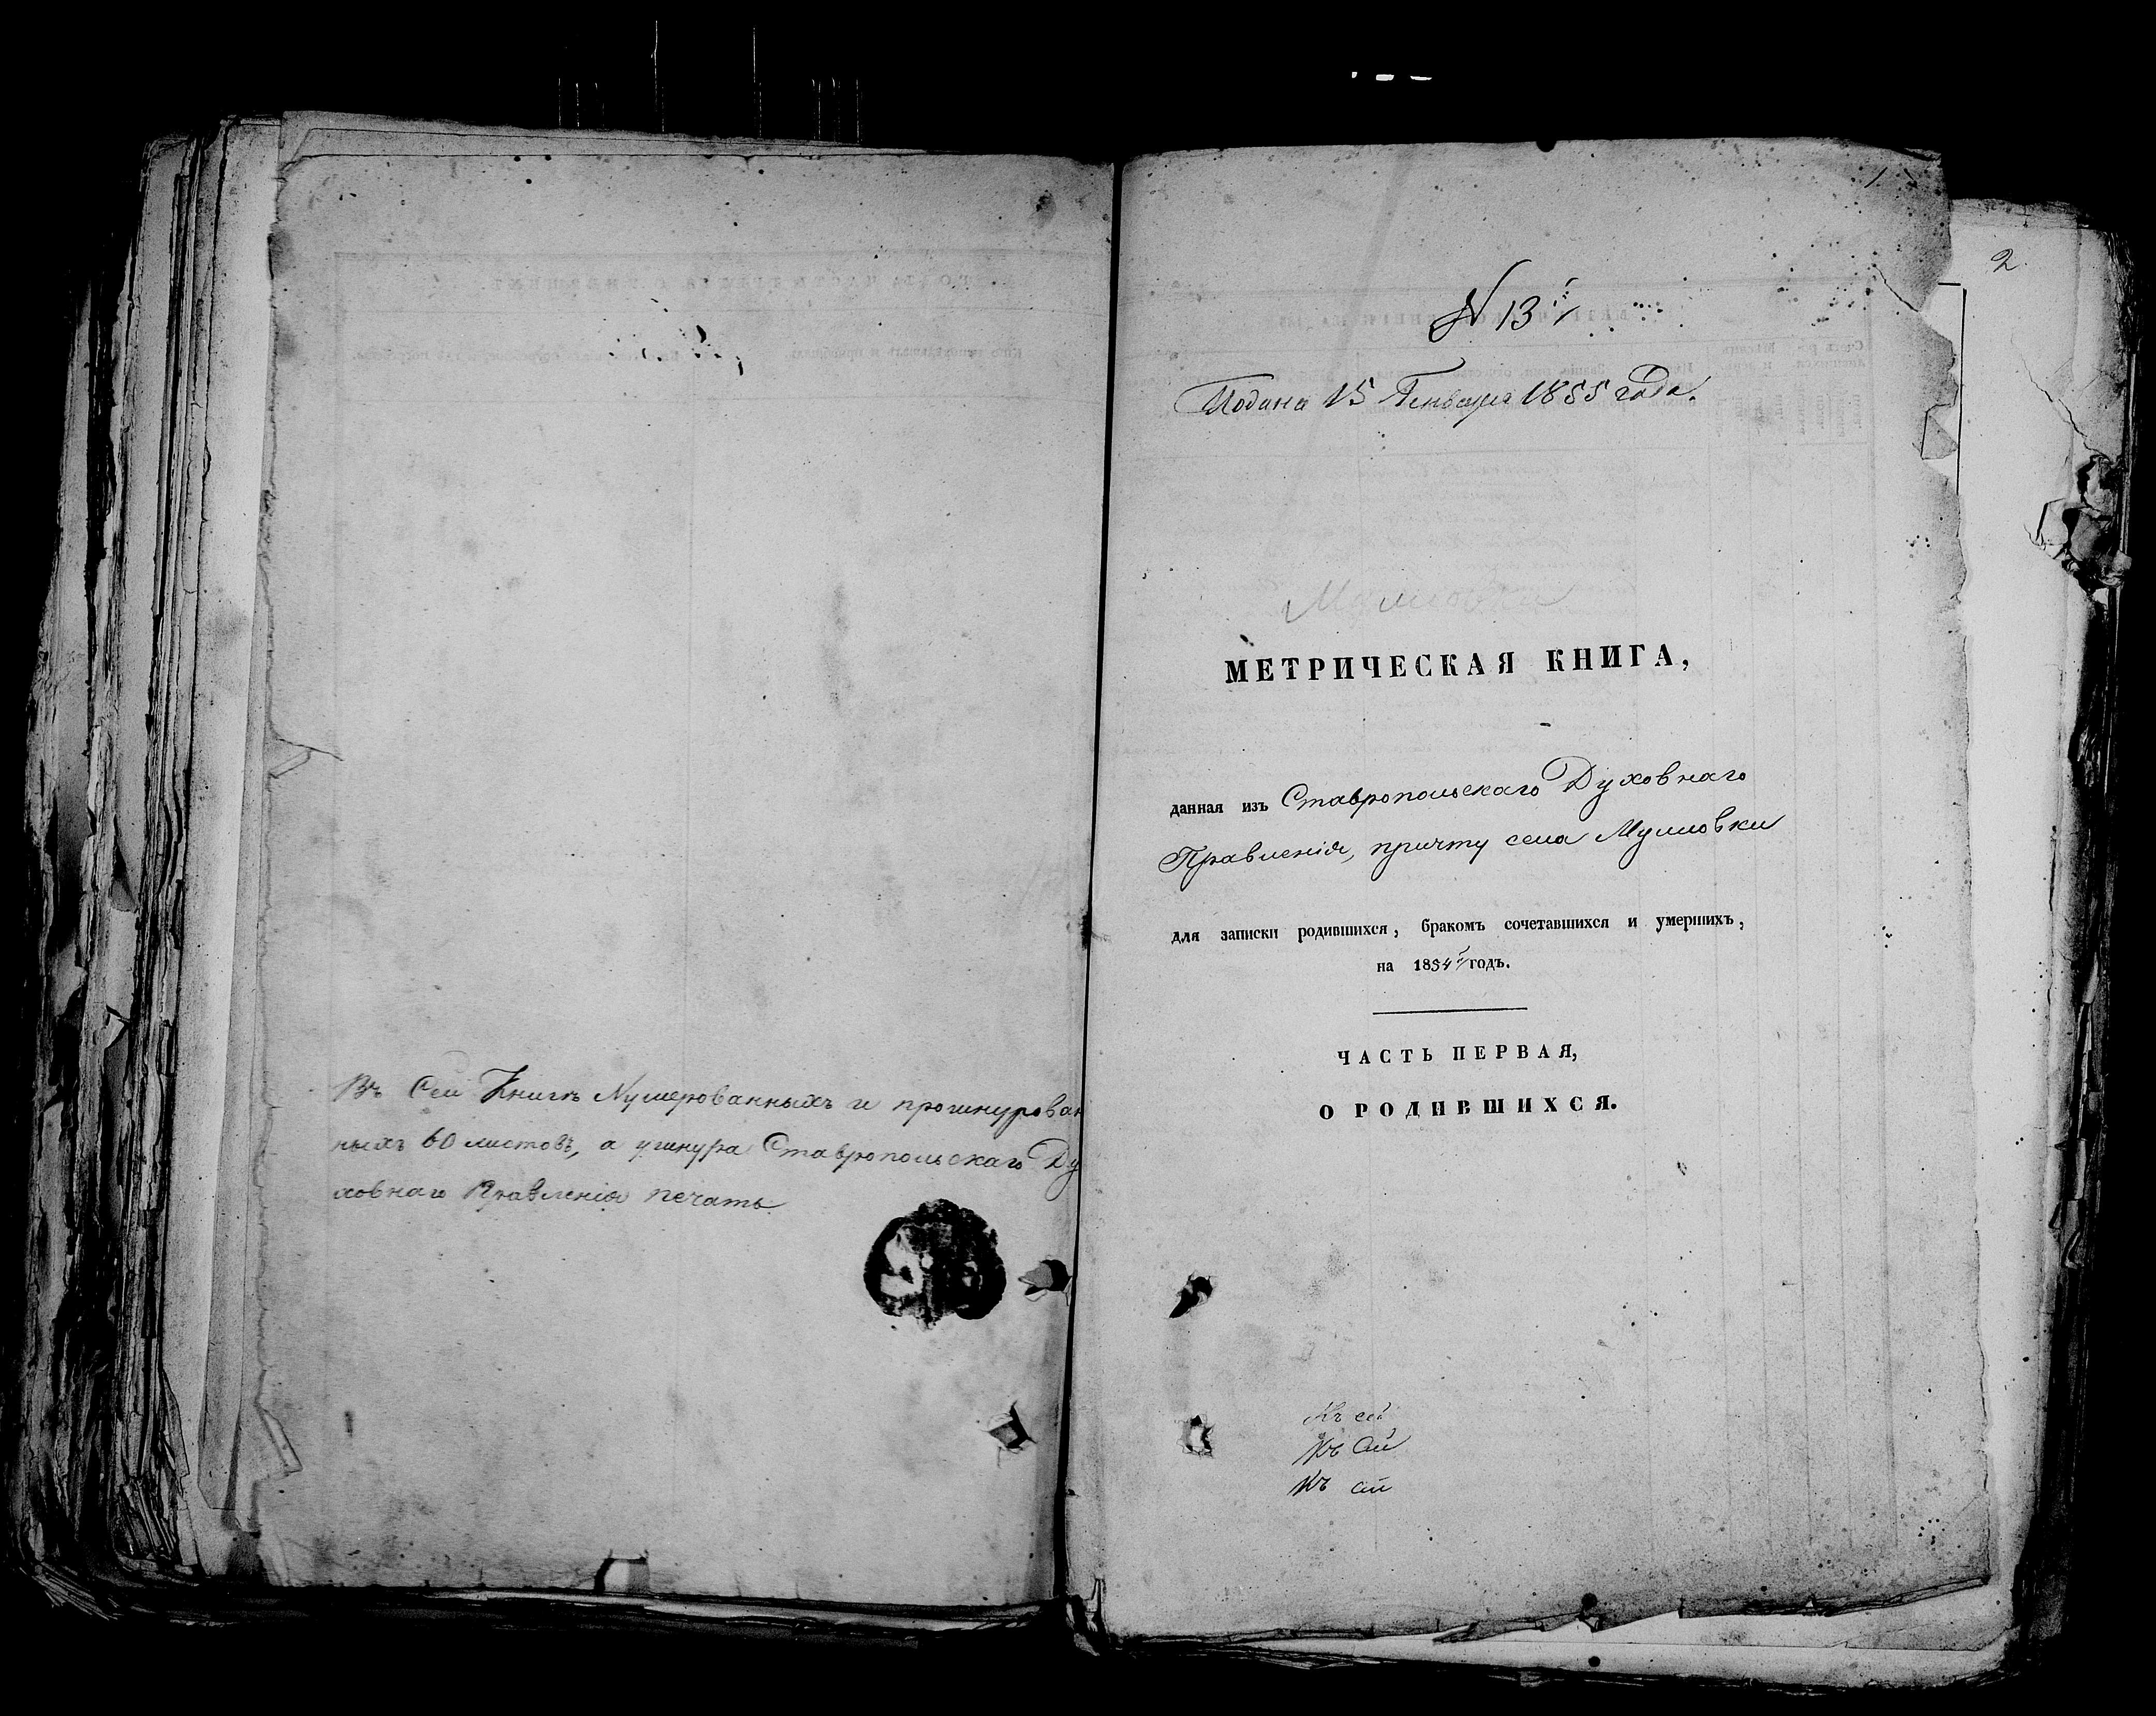 Въ Сей Книгѣ Нумерованныхъ и прошнурован
ныхъ 60 листовъ, а у шнура Ставропольскаго Ду
ховнаго Правленія печать
2
N 13й
Подана 15 Генваря 1855 года.
Мулловки
МЕТРИЧЕСКАЯ КНИГА,
данная изъ Ставропольскаго Духовнаго
Правленія, причту села Мулловки
для записки родившихся, бракомъ сочетавшихся и умершихъ,
на 1854й годъ.
ЧАСТЬ ПЕРВАЯ,
О РОДИВШИХСЯ.
Къ сей
Къ Сей
Къ сей